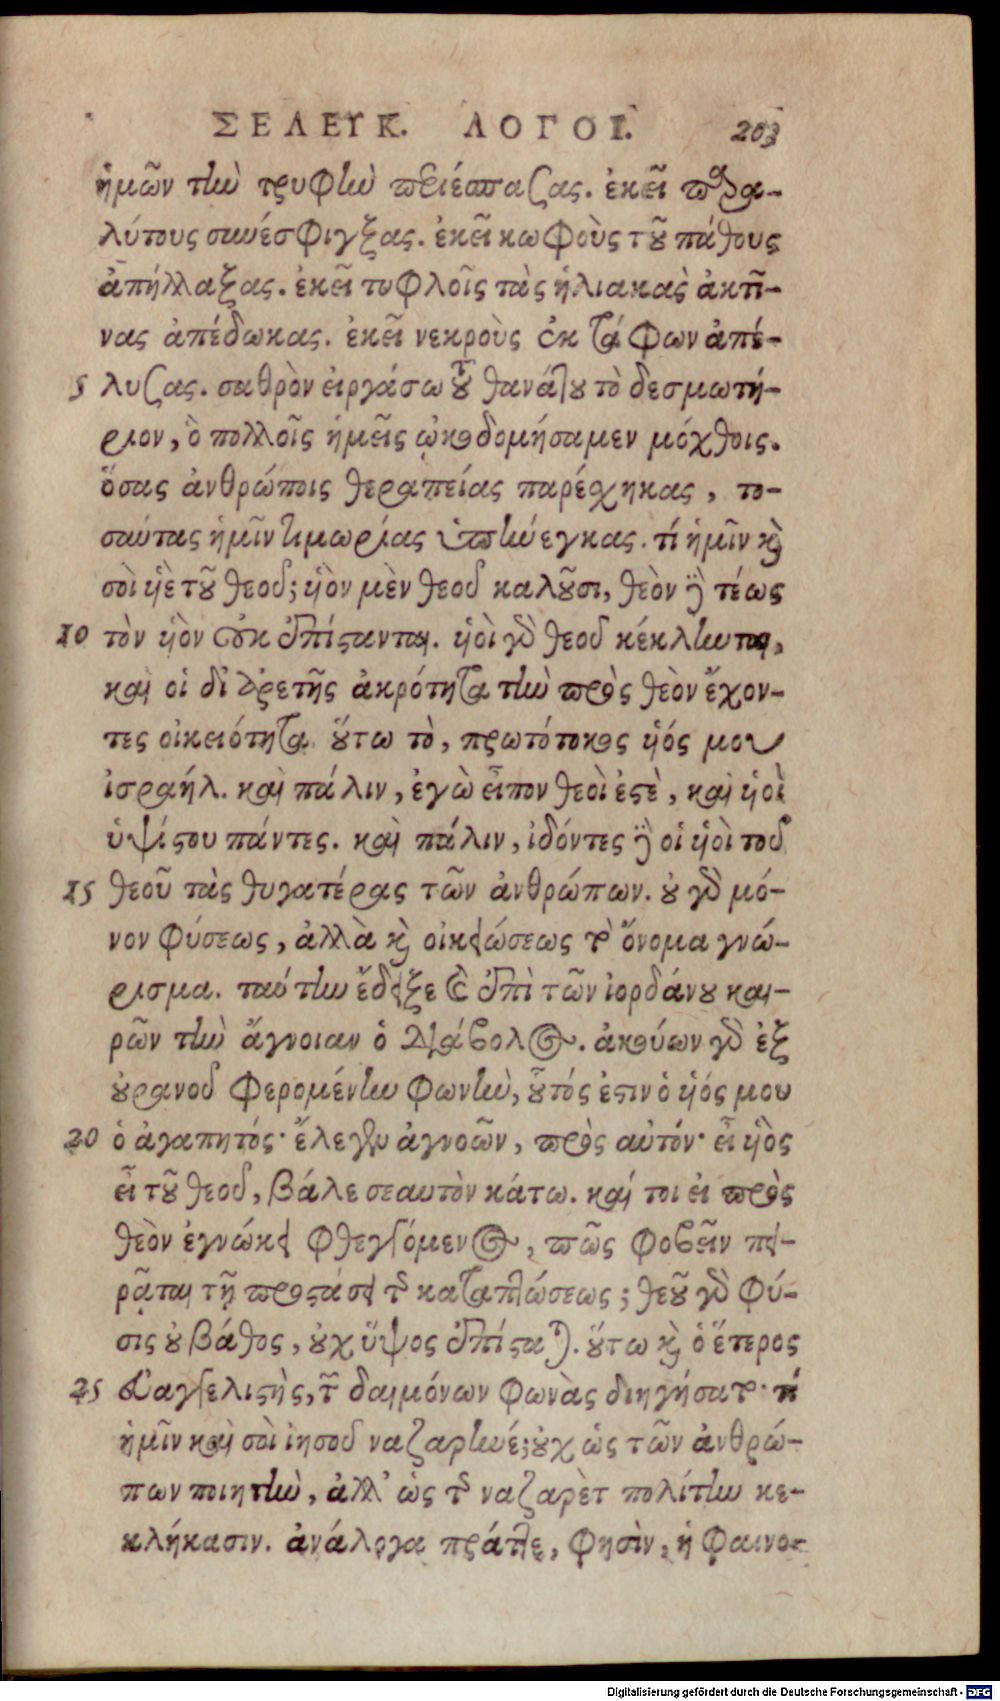 ΣΕΛΕΥΚ. ΛΟΓΟΙ. 203
ἡμῶν τὴν τρυφὴν περιέσπασας. ἐκεῖ παρα-
λύτους συνέσφιγξας. ἐκεῖ κωφοὺς τοῦ πάθους
ἀπήλλαξας. ἐκεῖ τυφλοῖς τὰς ἡλιακὰς ἀκτῖ-
νας ἀπέδωκας. ἐκεῖ νεκροὺς ἐκ τάφων ἀπέ-
5 λυσας. σαθρὸν εἰργάσω τοῦ θανάτου τὸ δεσμωτή-
ριον, ὃ πολλοῖς ἡμεῖς ᾠκοδομήσαμεν μόχθοις.
ὅσας ἀνθρώποις θεραπείας παρέσχηκας, το-
σαύτας ἡμῖν τιμωρίας ὑπήνεγκας. τί ἡμῖν καὶ
σοὶ υἱὲ τοῦ θεοῦ; υἱὸν μὲν θεοῦ καλοῦσι, θεὸν δὲ τέως
10 τὸν υἱὸν οὐκ ἐπίστανται. υἱοὶ γὰρ θεοῦ κέκληνται,
καὶ οἱ δι' ἀρετῆς ἀκρότητα τὴν πρὸς θεὸν ἔχον-
τες οἰκειότητα. οὕτω τὸ, πρωτότοκος υἱός μου
ἰσραήλ. καὶ πάλιν, ἐγὼ εἶπον θεοὶ ἐστὲ, καὶ υἱοὶ
ὑψίστου πάντες. καὶ πάλιν, ἰδόντες δὲ οἱ υἱοὶ τοῦ
15 θεοῦ τὰς θυγατέρας τῶν ἀνθρώπων. οὐ γὰρ μό-
νον φύσεως, ἀλλὰ καὶ οἰκειώσεως τὸ ὄνομα γνώ-
ρισμα. ταύτην ἔδειξε καὶ ἐπὶ τῶν ἰορδάνου και-
ρῶν τὴν ἄγνοιαν ὁ διάβολος. ἀκούων γὰρ ἐξ
οὐρανοῦ φερομένην φωνὴν, οὗτός ἐστιν ὁ υἱός μου
20 ὁ ἀγαπητός· ἔλεγεν ἀγνοῶν, πρὸς αὐτόν· εἰ υἱὸς
εἶ τοῦ θεοῦ, βάλε σεαυτὸν κάτω. καί τοι εἰ πρὸς
θεὸν ἐγνώκει φθεγγόμενος, πῶς φοβεῖν πει-
ρᾶται τῇ προστάσει τῆς καταπτώσεως; θεοῦ γὰρ φύ-
σις οὐ βάθος, οὐχ ὕψος ἐπίσταται. οὕτω καὶ ὁ ἕτερος
25 εὐαγγελιστὴς, τῶν δαιμόνων φωνὰς διηγήσατο· τί
ἡμῖν καὶ σοὶ ἰησοῦ ναζαρηνέ; οὐχ ὡς τῶν ἀνθρώ-
πων ποιητὴν, ἀλλ' ὡς τῆς ναζαρὲτ πολίτην κε-
κλήκασιν. ἀνάλογα πράττε, φησὶν, ἡ φαινο-
Digitalisierung gefördert durch die Deutsche Forschungsgemeinschaft - DFG